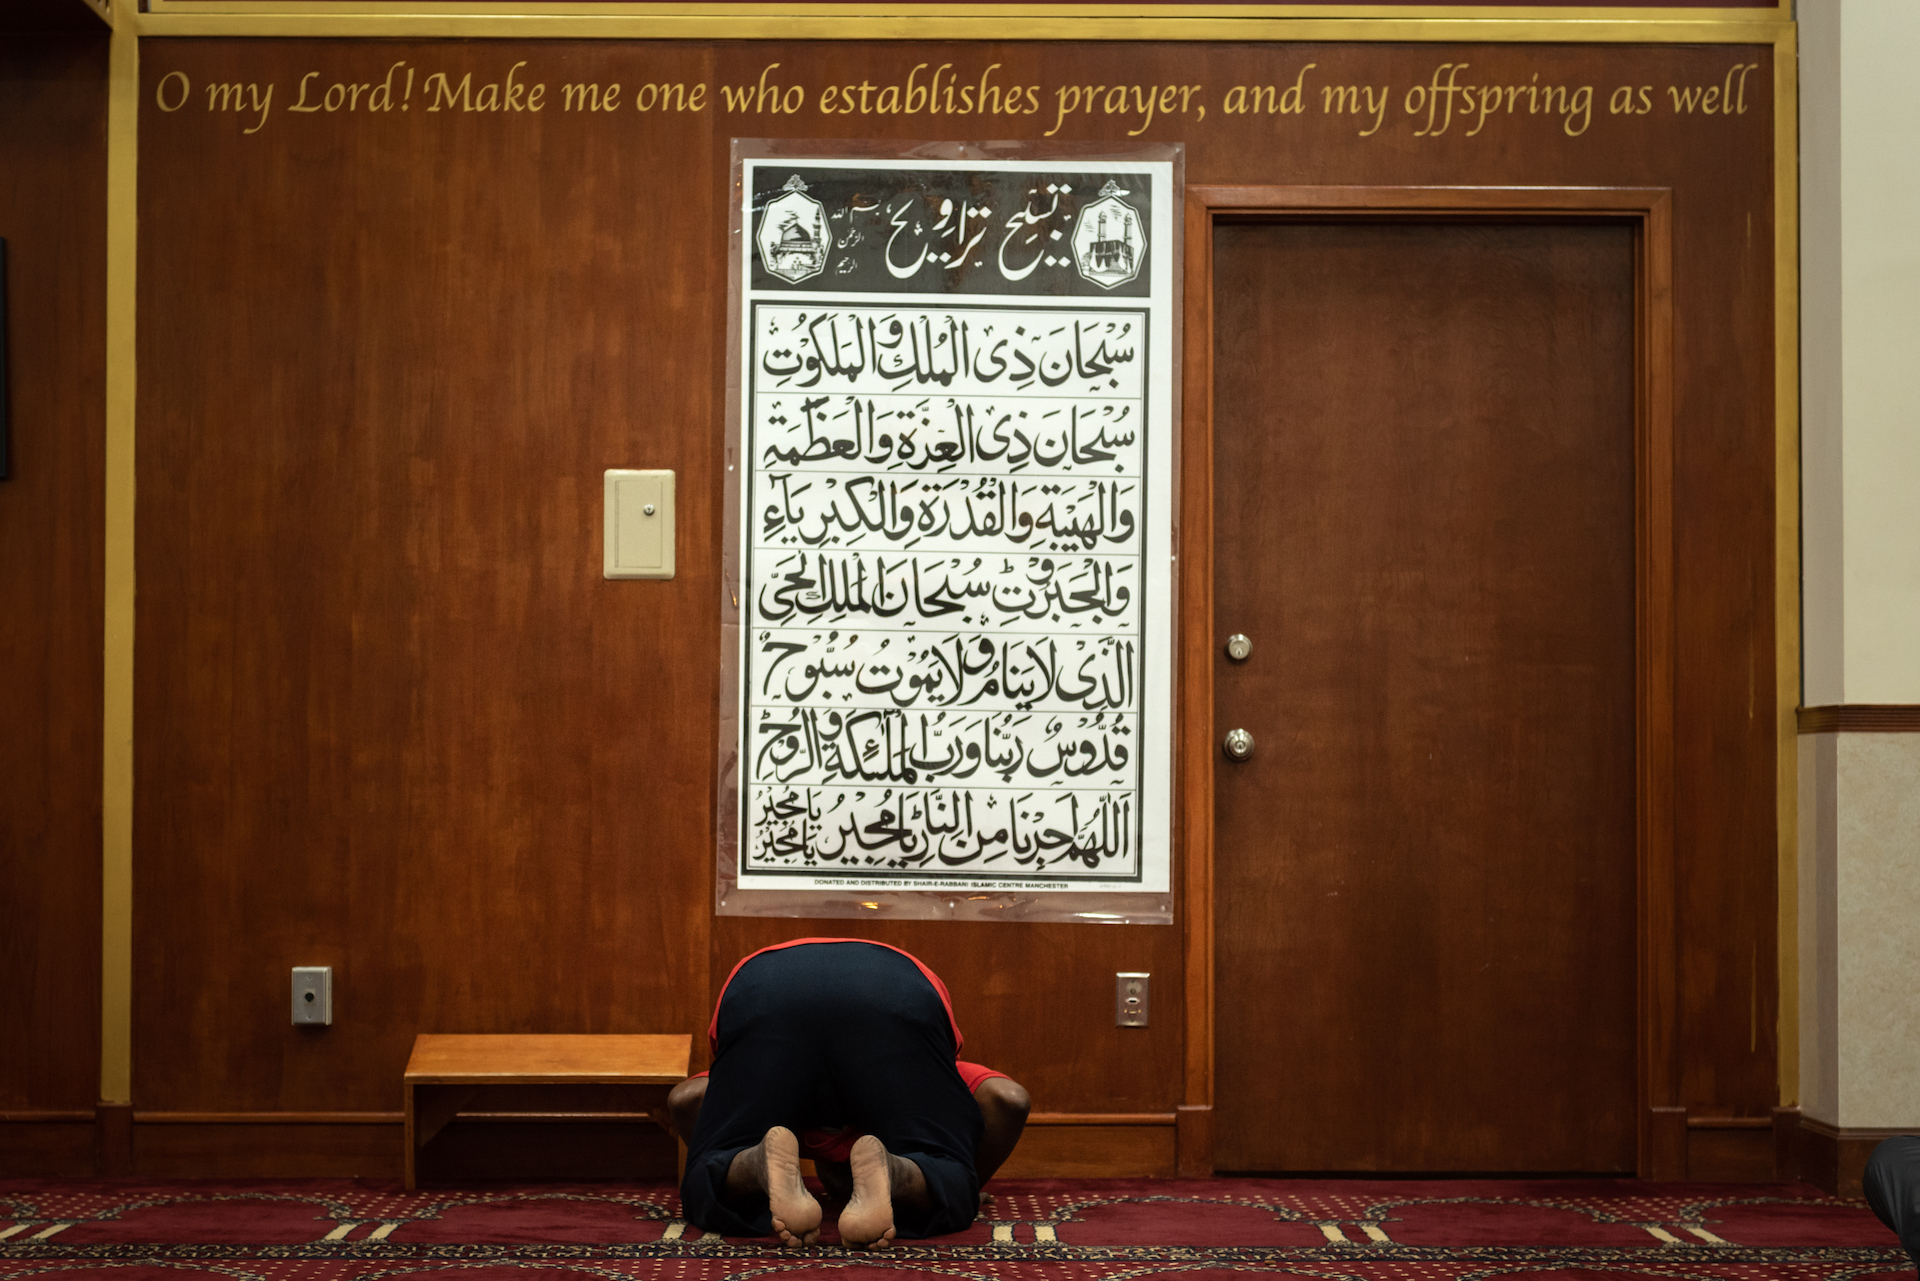 O my Lord! Make me one who establishes prayer, and my offspring as well
تسبیح تراویح
بسم الله
الرحمن
الرحیم
سُبْحَانَ ذِی الْمُلْكِ وَالْمَلَكُوْتِ
سُبْحَانَ ذِی الْعِزَّةِ وَالْعَظَمَةِ
وَالْهَيْبَةِ وَالْقُدْرَةِ وَالْكِبْرِيَآءِ
وَالْجَبَرُوْتِ سُبْحَانَ الْمَلِكِ الْحَیِّ
الَّذِی لَا يَنَامُ وَلَا يَمُوْتُ سُبُّوْحٌ
قُدُّوْسٌ رَبُّنَا وَرَبُّ الْمَلٰٓئِكَةِ وَالرُّوْحِ
اَللّٰهُمَّ اَجِرْنَا مِنَ النَّارِ يَا مُجِيْرُ يَا مُجِيْرُ يَا مُجِيْرُ
DONATED AND DISTRIBUTED BY SHAIR-E-RABBANI ISLAMIC CENTRE MANCHESTER